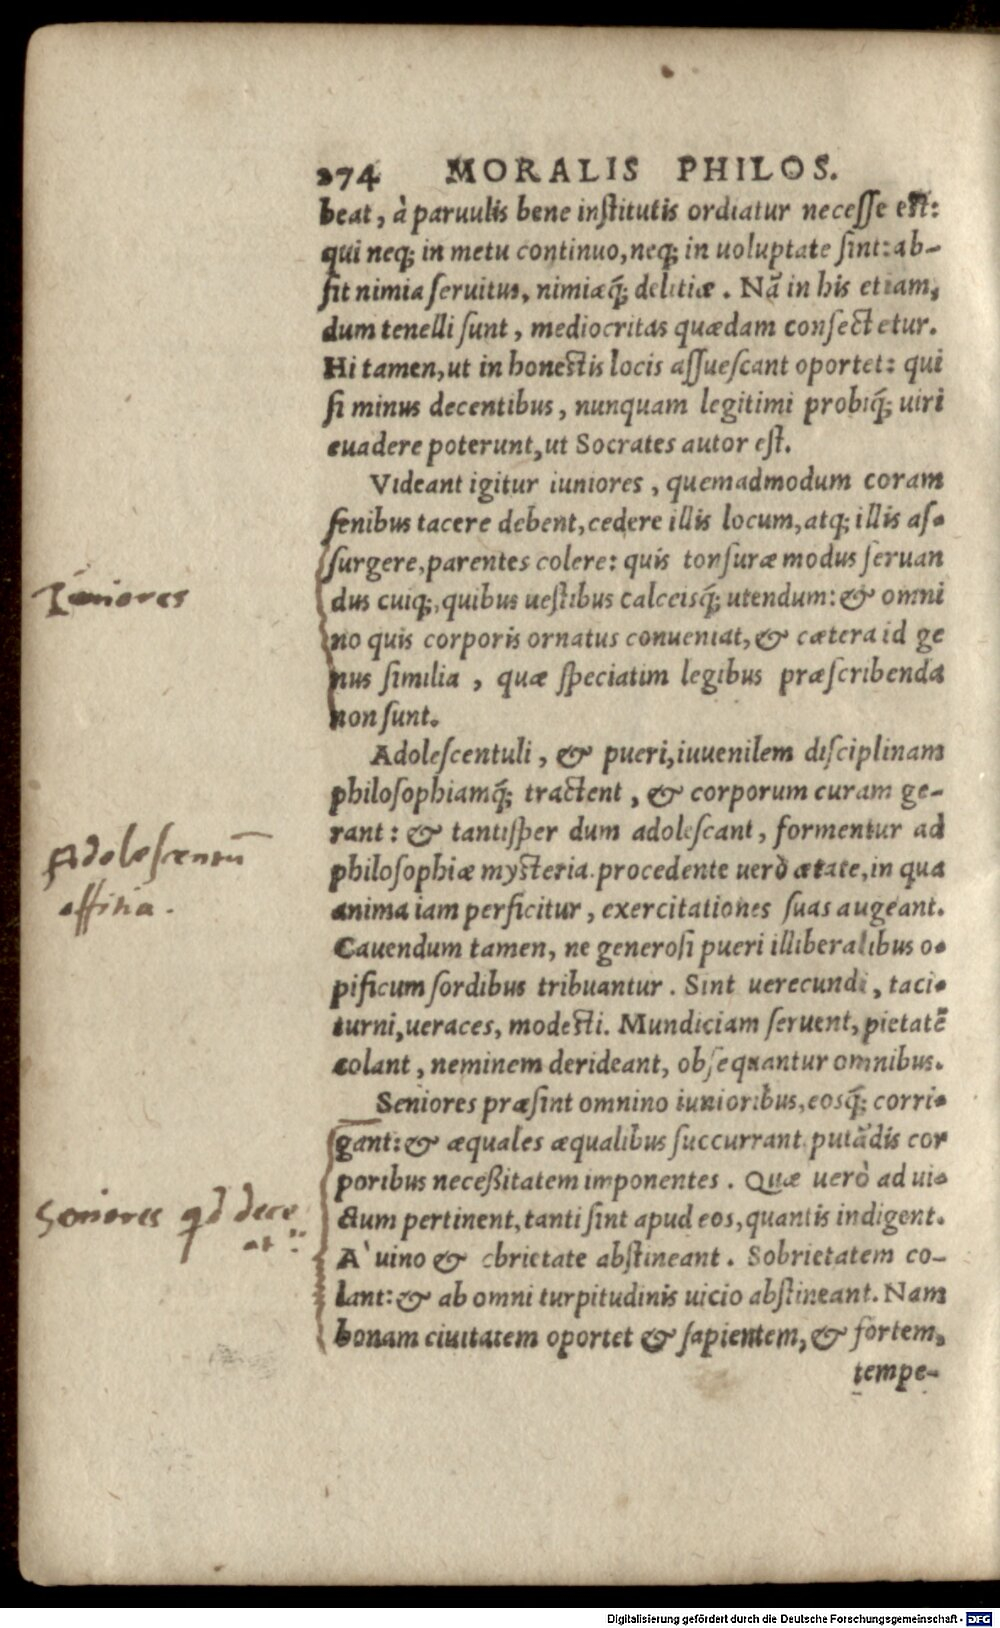 274 MORALIS PHILOS.
beat, à paruulis bene institutis ordiatur necesse est:
qui neq; in metu continuo, neq; in uoluptate sint: ab-
sit nimia seruitus, nimiæq́; delitiæ. Nā in his etiam,
dum tenelli sunt, mediocritas quædam consectetur.
Hi tamen, ut in honestis locis assuescant oportet: qui
si minus decentibus, nunquam legitimi probiq́; uiri
euadere poterunt, ut Socrates autor est.
Videant igitur iuniores, quemadmodum coram
senibus tacere debent, cedere illis locum, atq; illis as-
surgere, parentes colere: quis tonsuræ modus seruan
dus cuiq;, quibus uestibus calceisq́; utendum: & omni
no quis corporis ornatus conueniat, & cætera id ge
nus similia, quæ speciatim legibus præscribenda
non sunt.
Iuniores
Adolescentuli, & pueri, iuuenilem disciplinam
philosophiamq́; tractent, & corporum curam ge-
rant: & tantisper dum adolescant, formentur ad
philosophiæ mysteria. procedente uerò ætate, in qua
anima iam perficitur, exercitationes suas augeant.
Cauendum tamen, ne generosi pueri illiberalibus o-
pificum sordibus tribuantur. Sint uerecundi, taci-
turni, ueraces, modesti. Mundiciam seruent, pietatē
colant, neminem derideant, obsequantur omnibus.
Adolescentū
offitia.
Seniores præsint omnino iunioribus, eosq́; corri-
gant: & æquales æqualibus succurrant. putādis cor
poribus neceßitatem imponentes. Quæ uerò ad ui-
ctum pertinent, tanti sint apud eos, quantis indigent.
A` uino & ebrietate abstineant. Sobrietatem co-
lant: & ab omni turpitudinis uicio abstineant. Nam
bonam ciuitatem oportet & sapientem, & fortem,
tempe-
Seniores qd dece
at
Digitalisierung gefördert durch die Deutsche Forschungsgemeinschaft - DFG